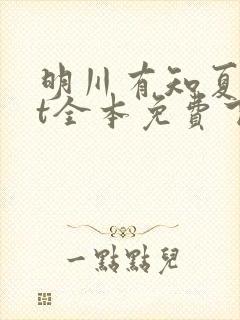 明川有知夏
t全本免費
一點點兒